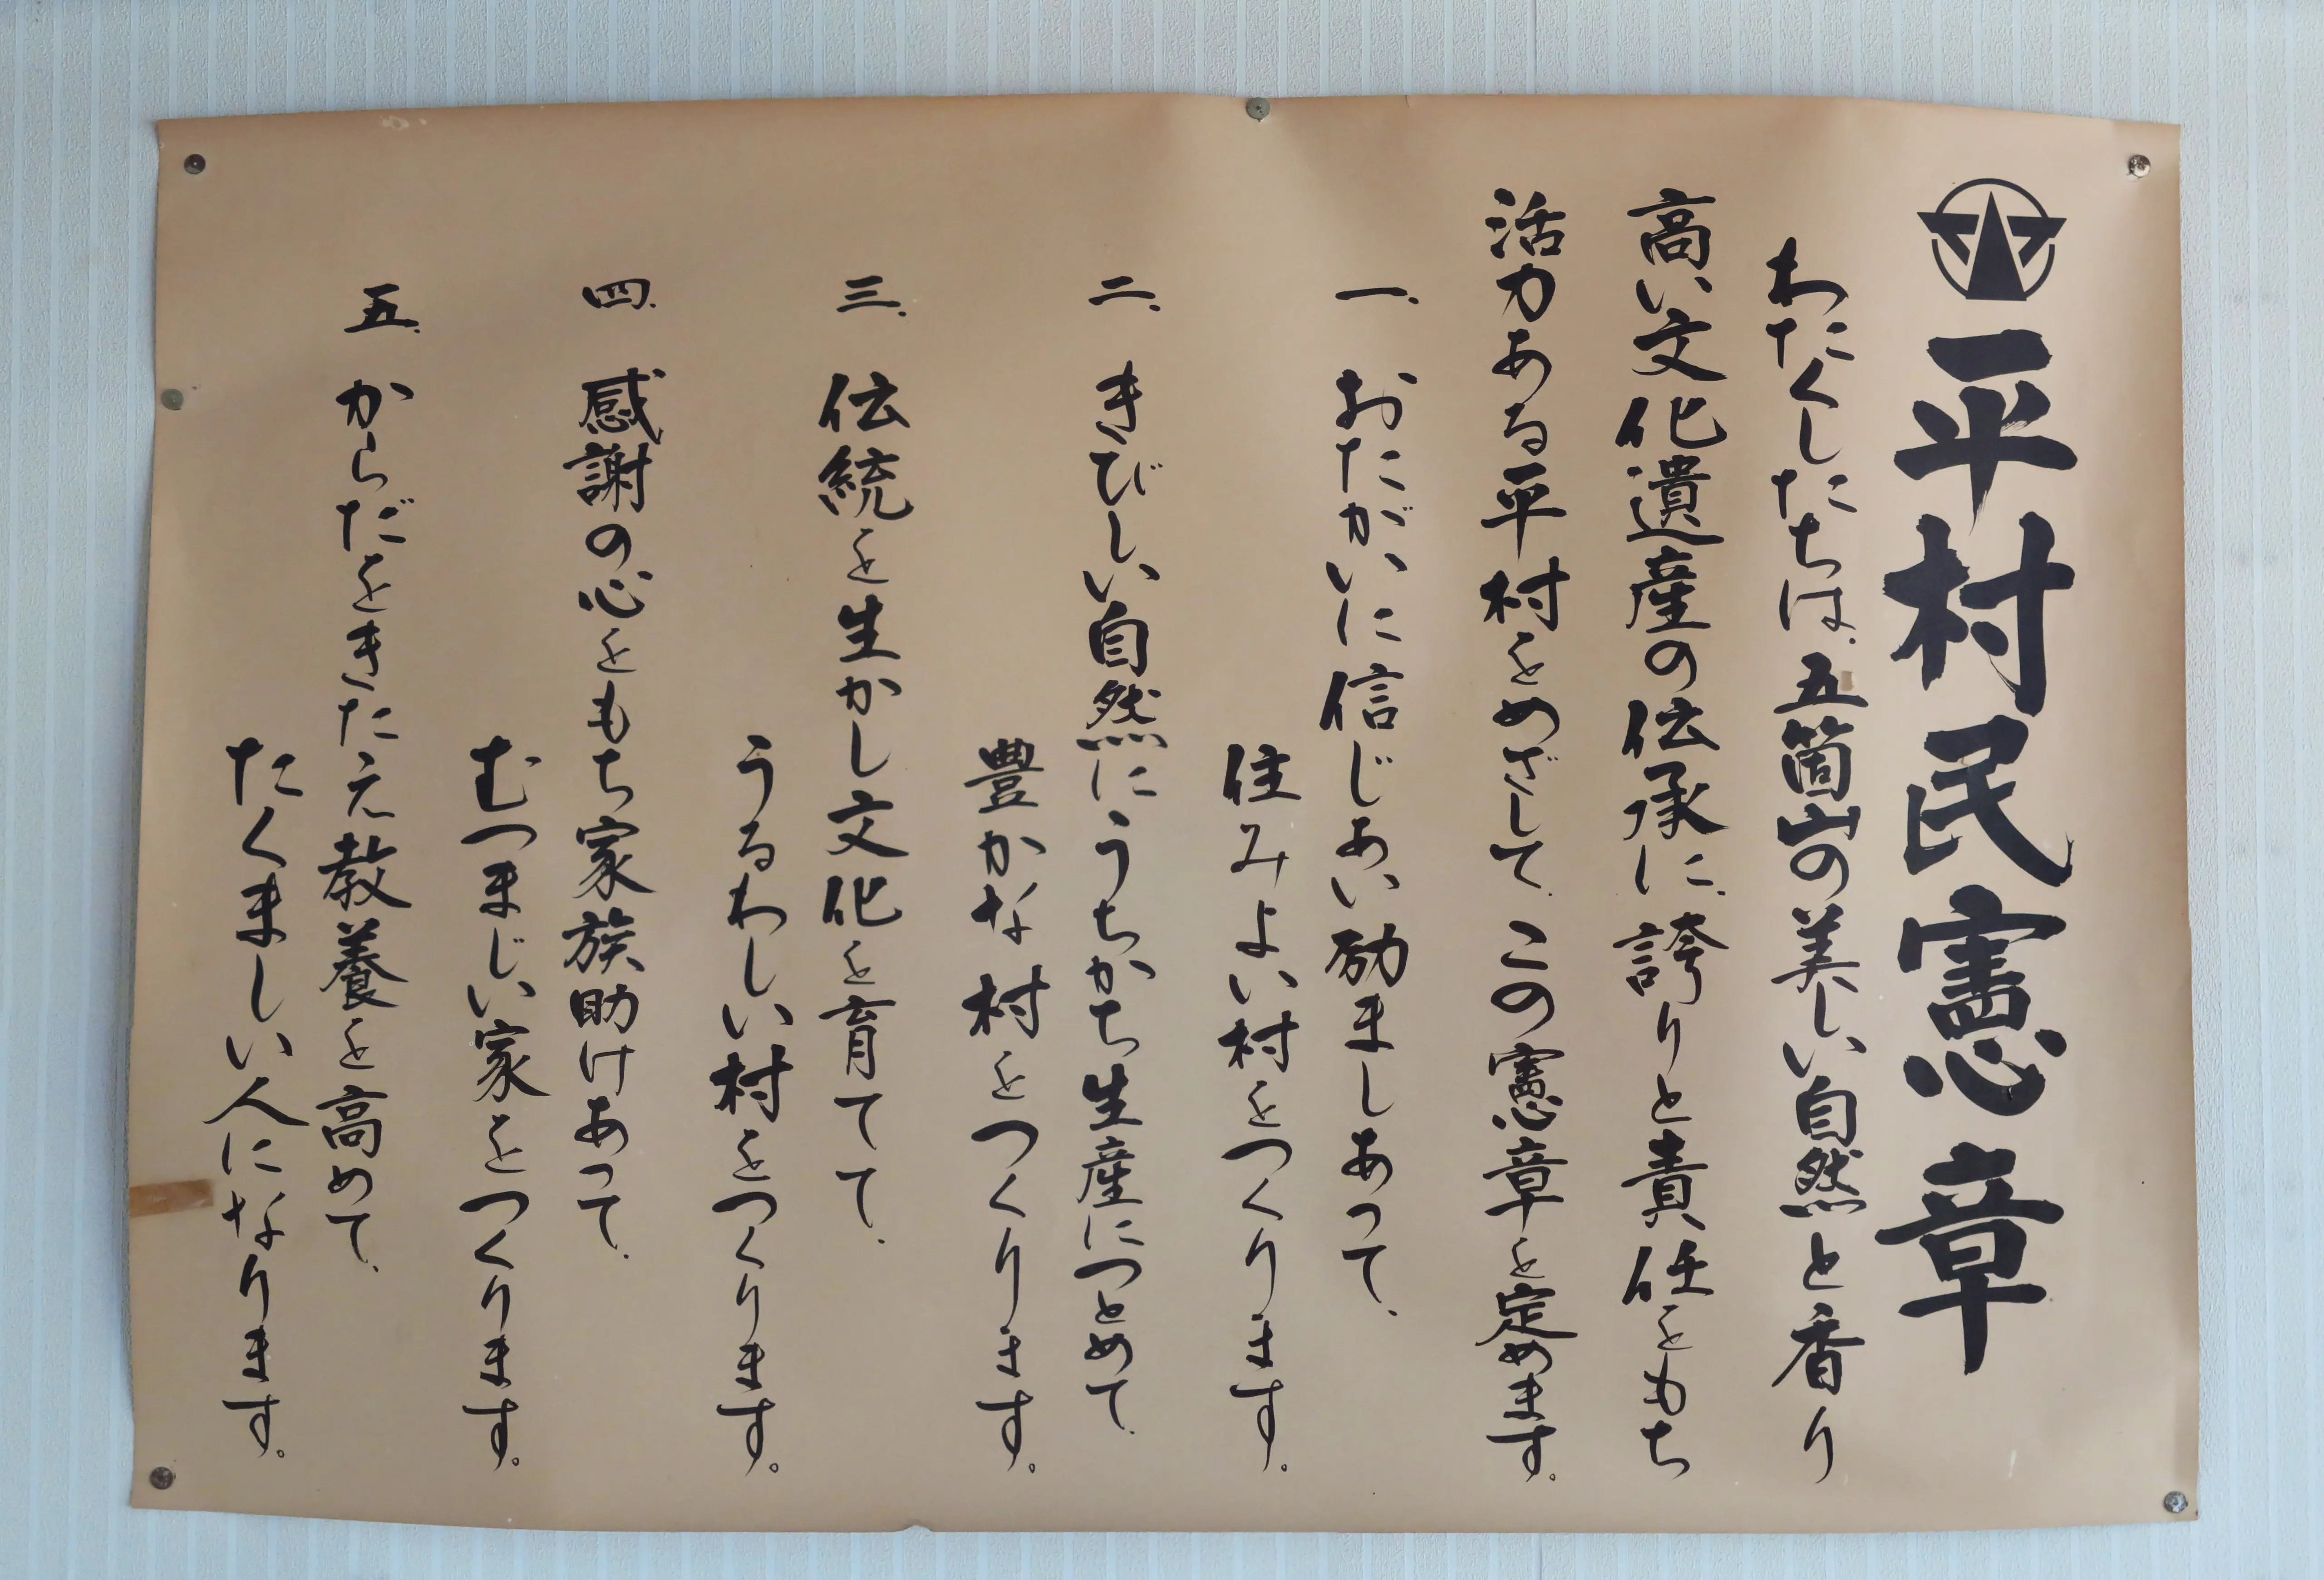 平村民憲章
わたくしたちは、五箇山の美しい自然と香り
高い文化遺産の伝承に、誇りと責任をもち
活力ある平村をめざして、この憲章を定めます。
一、おたがいに信じあい励ましあって、
住みよい村をつくります。
二、きびしい自然にうちかち生産につとめて、
豊かな村をつくります。
三、伝統を生かし文化を育てて、
うるわしい村をつくります。
四、感謝の心をもち家族助けあって、
むつまじい家をつくります。
五、からだをきたえ教養を高めて、
たくましい人になります。